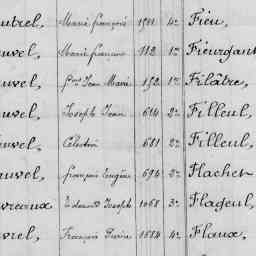 utrel, Marie françois 1511 4e Fieu,
uvel, Marie françois 112 1e Fieurgant
auvel, Jean Marie 152 1e Filâtre,
uvel, Joseph Jean 614 2e Filleul,
uvel, Célestin 681 2e Filleul,
auvel, françois Eugène 694 2e Flacher
vreaux, Edouard Joseph 1068 3e Flageul,
vrel, François Pierre 1684 4e Flaux,